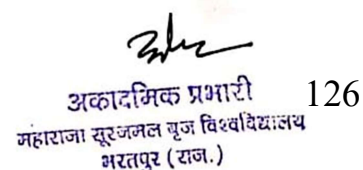 अकादमिक प्रभारी
126
महाराजा सूरजमल बृज विश्वविद्यालय
भरतपुर (राज.)